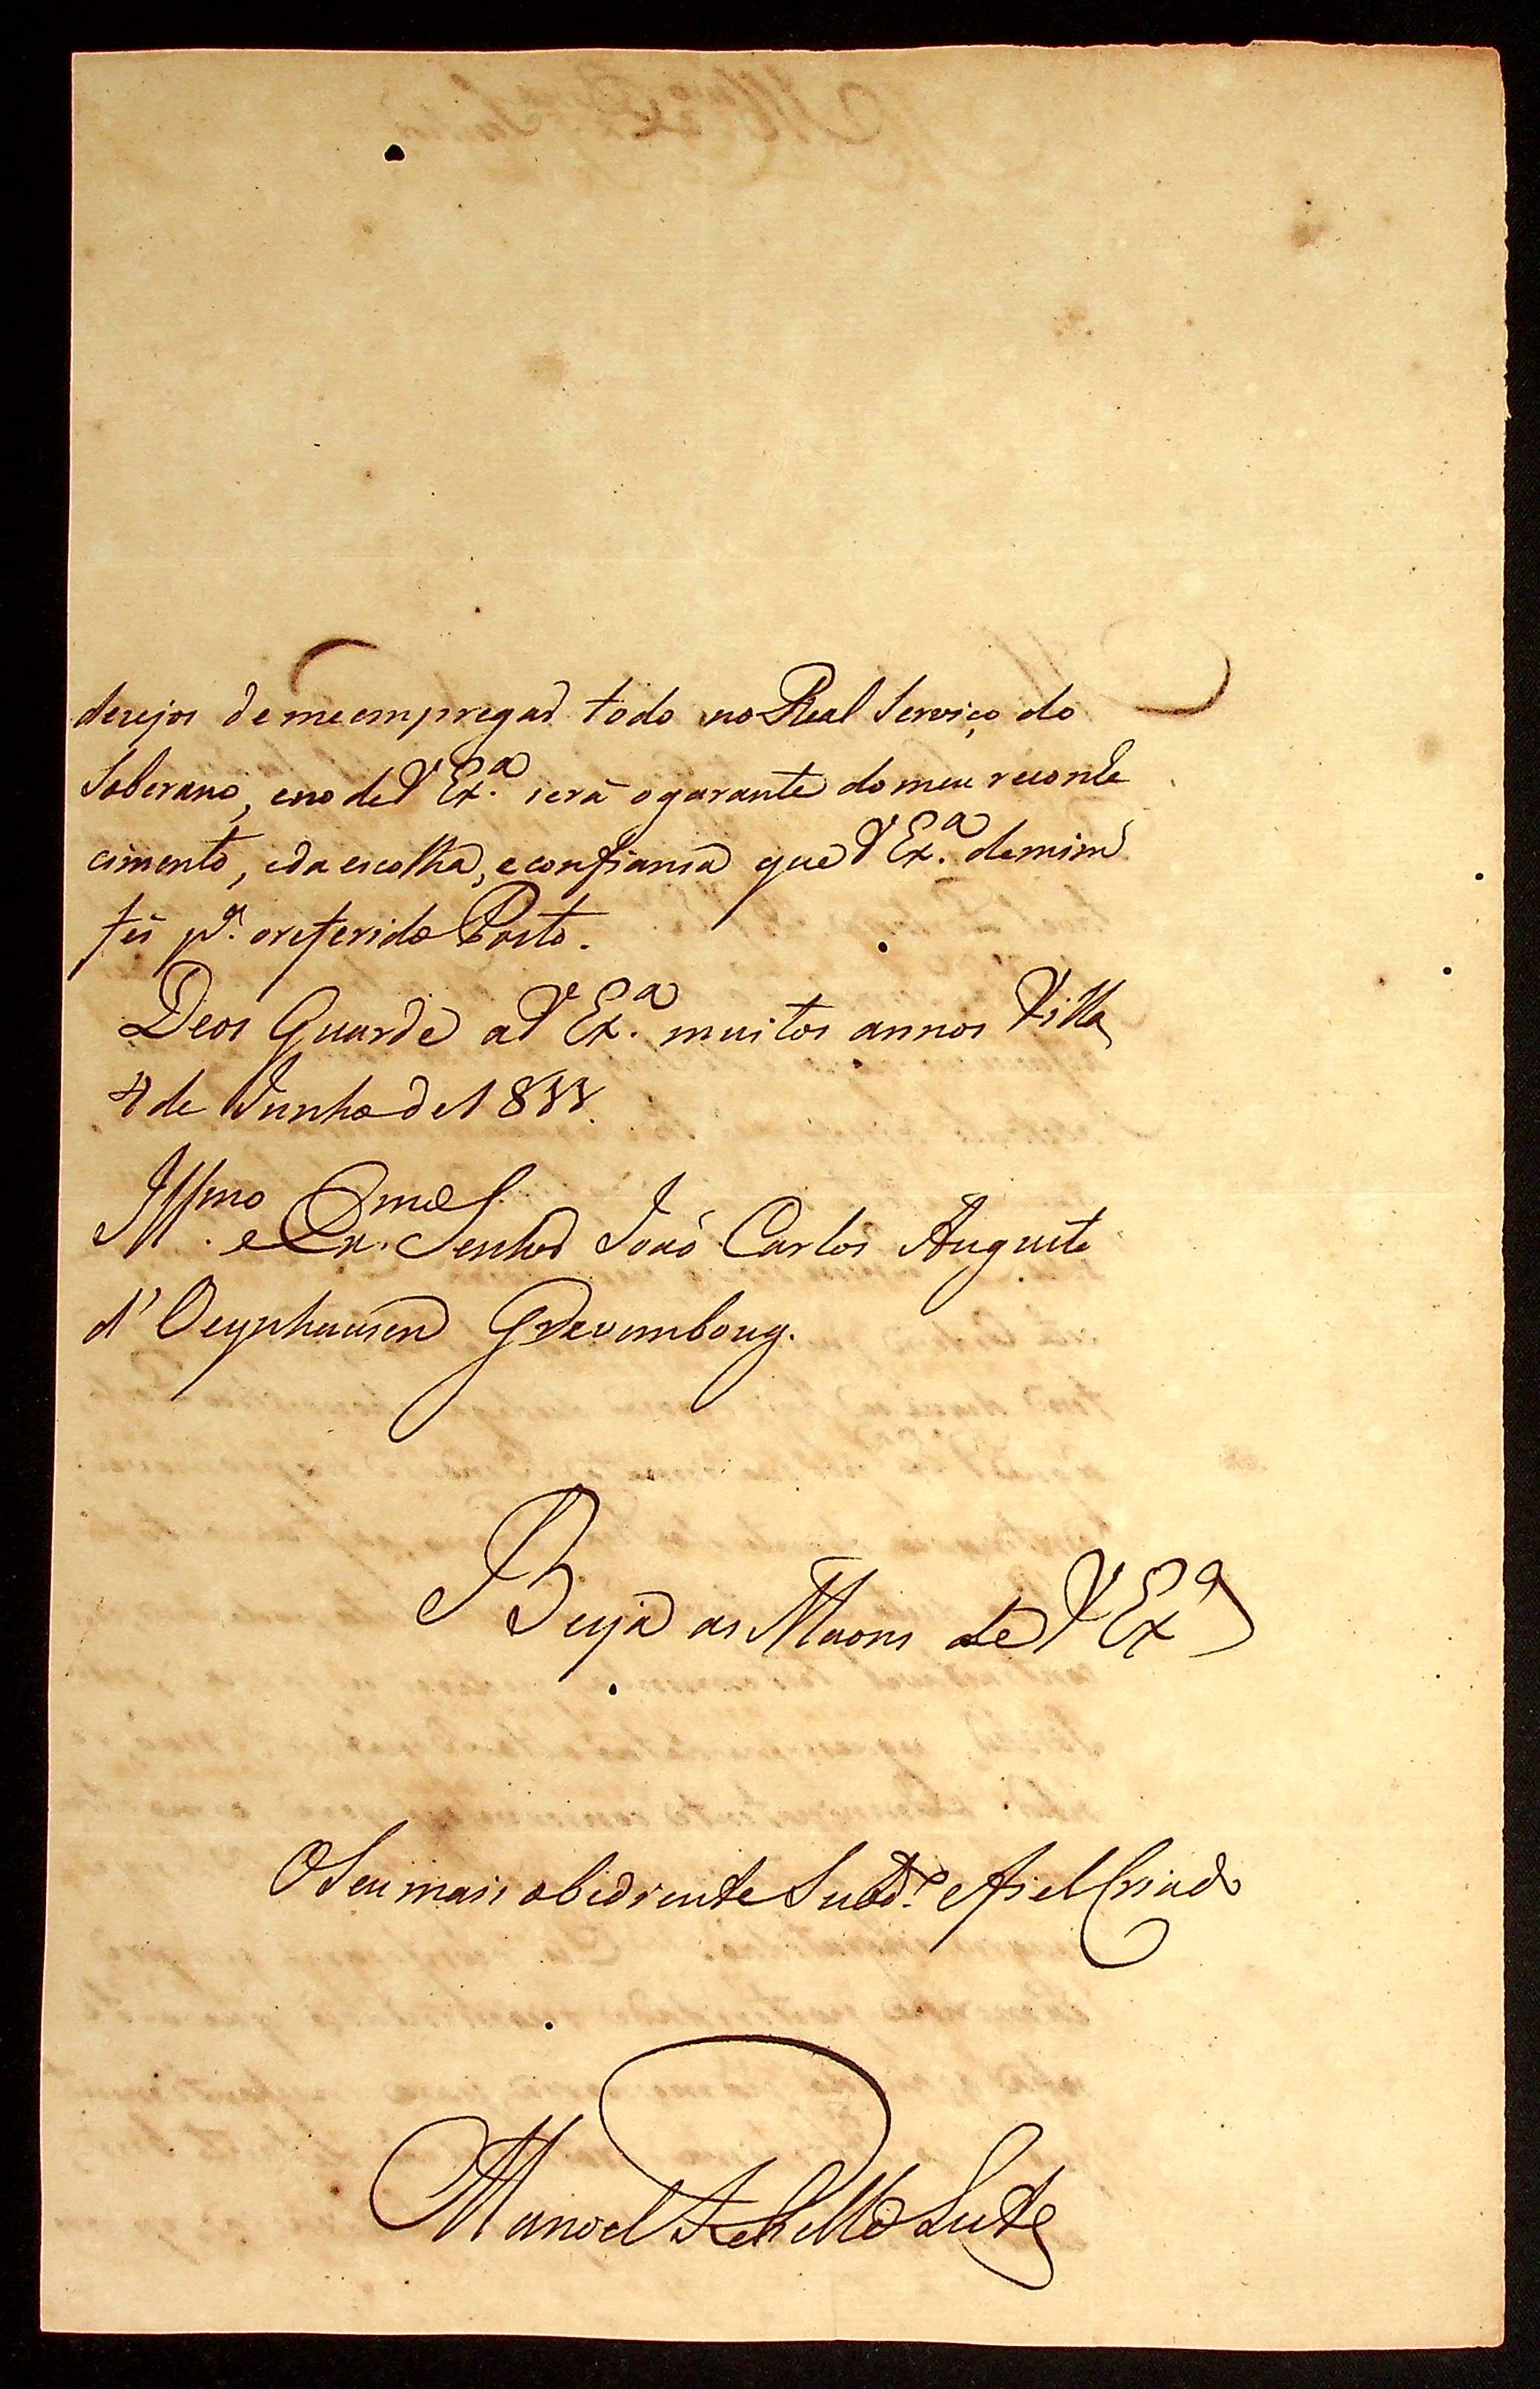 desejos de me empregar todo no Real Serviço do
Soberano, e no de V Ex.ª será o garante do meu reconhe
cimento, e da escolha, e confiansa que V Ex.ª de mim
fés p.ª o referido Posto.
Deos Guarde a V Ex.ª muitos annos Villa
4 de Junho de 1811.
Ill.mo e Ex.mo Senhor Joaõ Carlos Augusto
d' Oeynhausen Grevembourg.
Beija as Maons de V Exª
O Seu mais obediente Subd.º e fiel Criado
Manoel Rebello Leite